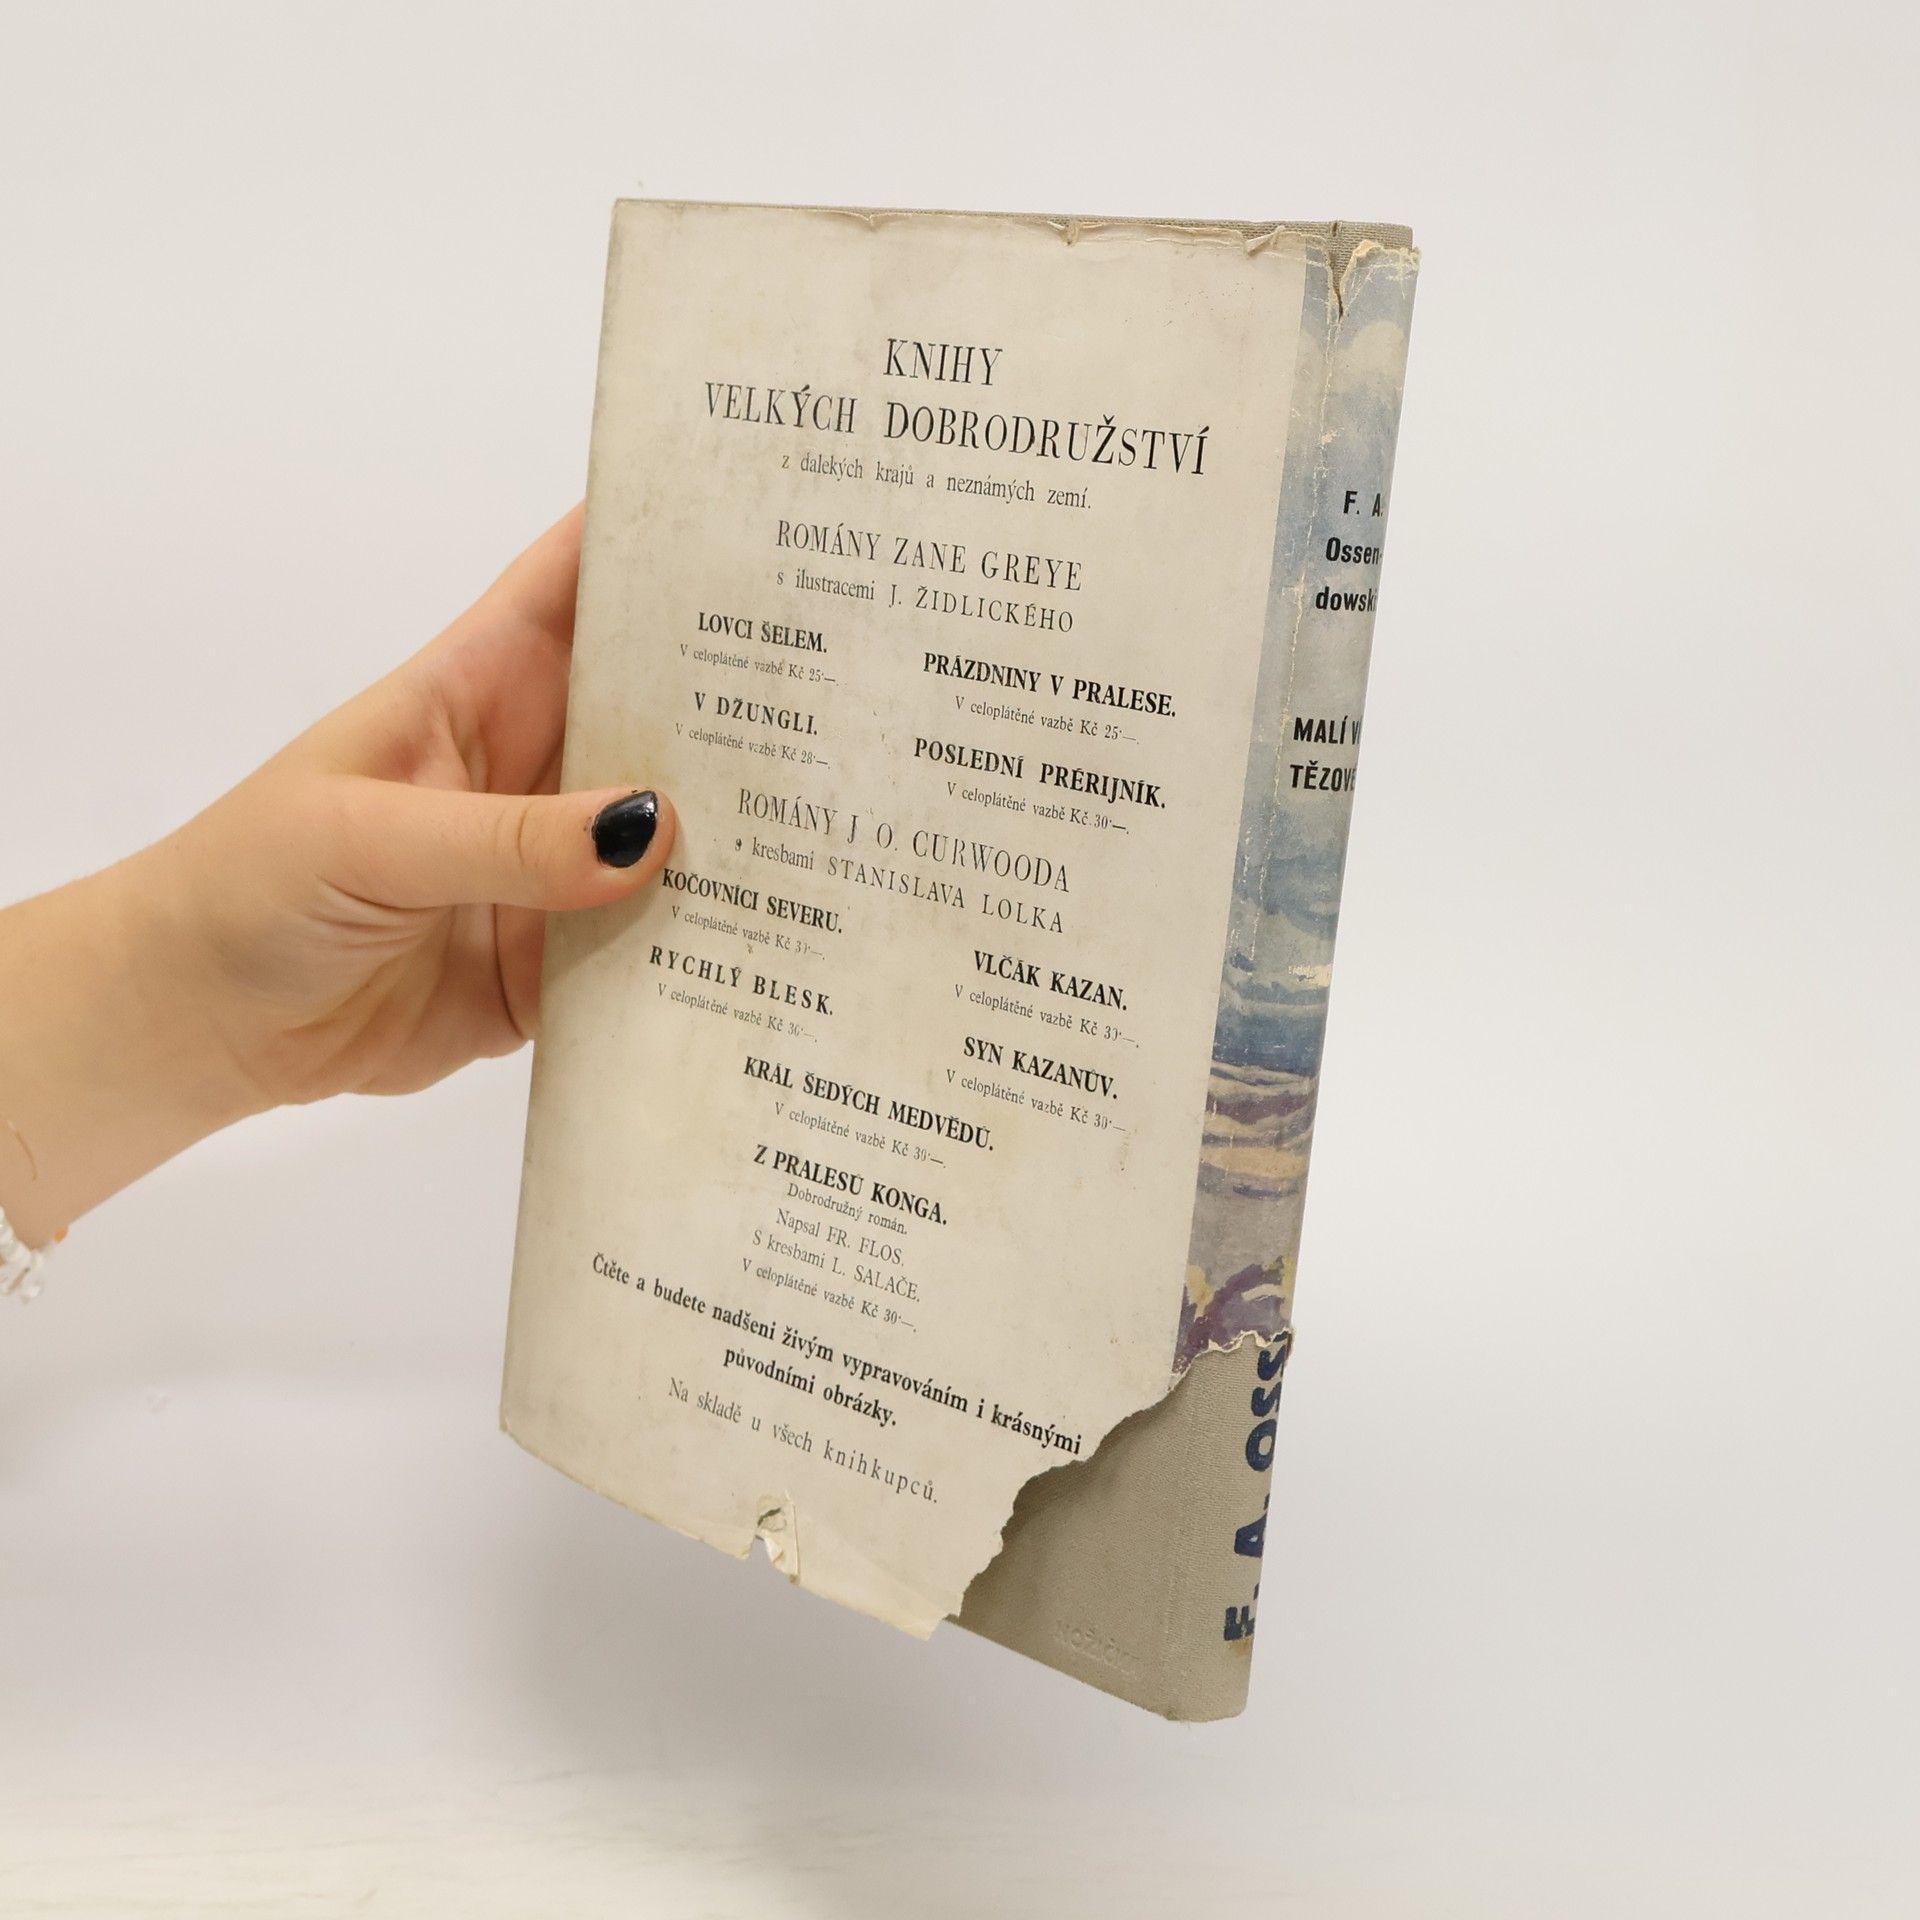 KNIHY
VELKÝCH DOBRODRUŽSTVÍ
z dalekých krajů a neznámých zemí.
ROMÁNY ZANE GREYE
s ilustracemi J. ŽIDLICKÉHO
LOVCI ŠELEM.
V celoplátěné vazbě Kč 25·—.
V DŽUNGLI.
V celoplátěné vazbě Kč 28·—.
PRÁZDNINY V PRALESE.
V celoplátěné vazbě Kč 25·—.
POSLEDNÍ PRÉRIJNÍK.
V celoplátěné vazbě Kč 30·—.
ROMÁNY J O. CURWOODA
s kresbami STANISLAVA LOLKA
KOČOVNÍCI SEVERU.
V celoplátěné vazbě Kč 30·—.
RYCHLÝ BLESK.
V celoplátěné vazbě Kč 30·—.
VLČÁK KAZAN.
V celoplátěné vazbě Kč 30·—.
SYN KAZANŮV.
V celoplátěné vazbě Kč 30·—
KRÁL ŠEDÝCH MEDVĚDŮ.
V celoplátěné vazbě Kč 30·—.
Z PRALESŮ KONGA.
Dobrodružný román.
Napsal FR. FLOS.
S kresbami L. SALAČE.
V celoplátěné vazbě Kč 30·—.
Čtěte a budete nadšeni živým vypravováním i krásnými
původními obrázky.
Na skladě u všech knihkupců.
F. A.
Ossen-
dowski
MALÍ V
TĚZOVÉ
F. A. OSS